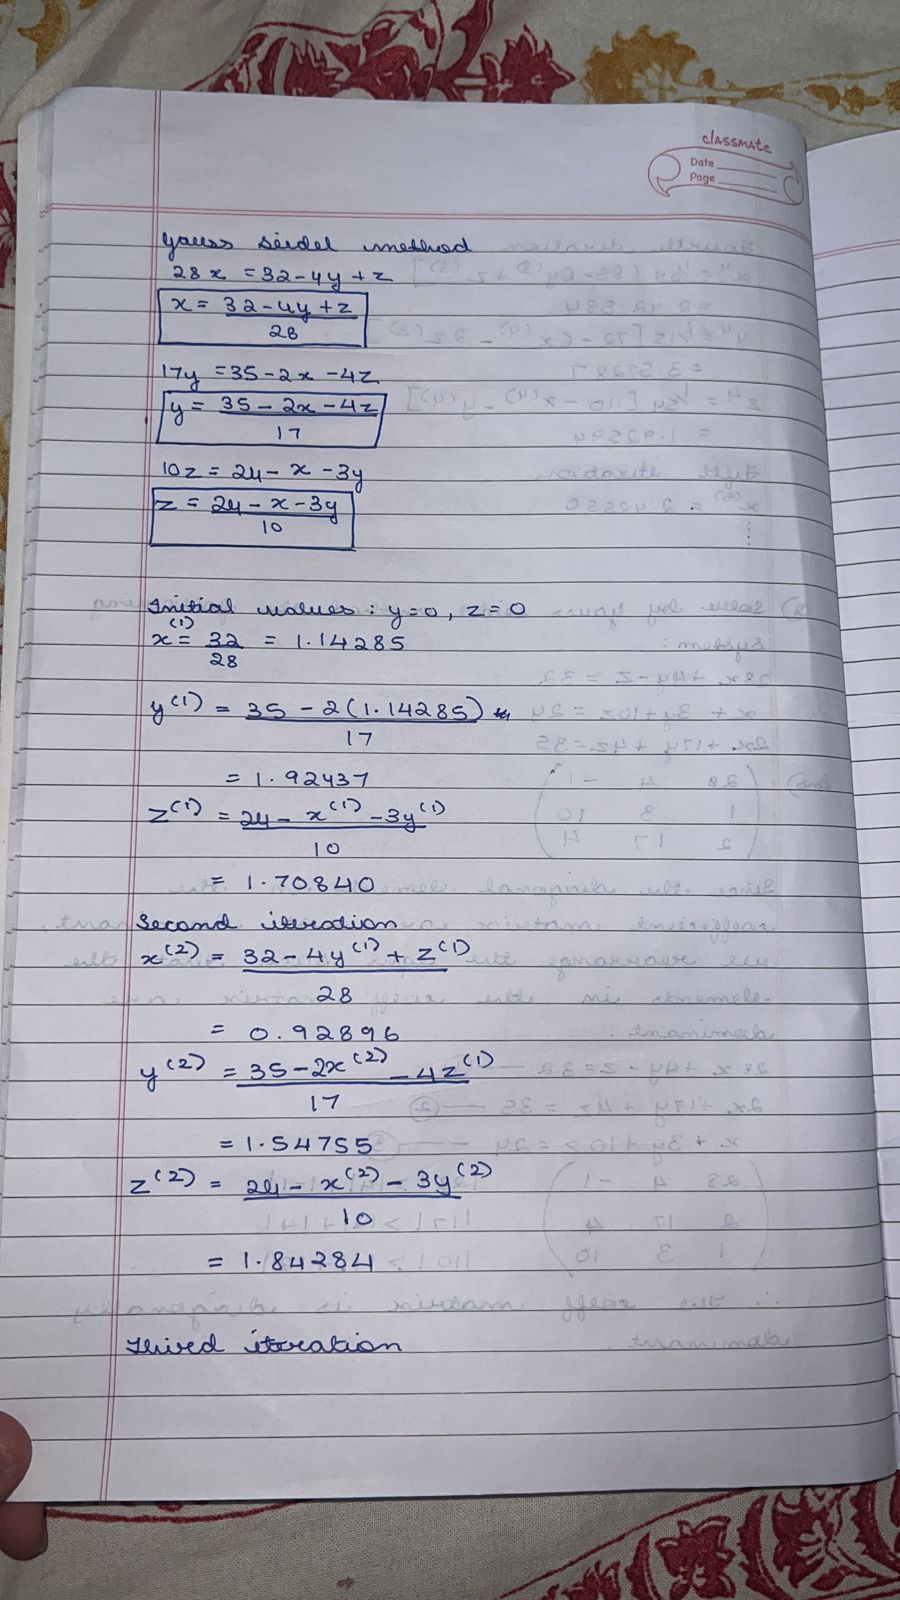 classmate
Date
Page
Gauss Seidel method
28x = 32-4y+z
x = 32-4y+z
28
17y = 35-2x-4z
y = 35-2x-4z
17
10z = 24-x-3y
z = 24-x-3y
10
Initial values: y=0, z=0
x(1) = 32 = 1.14285
28
y(1) = 35-2(1.14285)
17
= 1.92437
z(1) = 24-x(1)-3y(1)
10
= 1.70840
Second iteration
x(2) = 32-4y(1)+z(1)
28
= 0.92896
y(2) = 35-2x(2)-4z(1)
17
= 1.54755
z(2) = 24-x(2)-3y(2)
10
= 1.84284
Third iteration